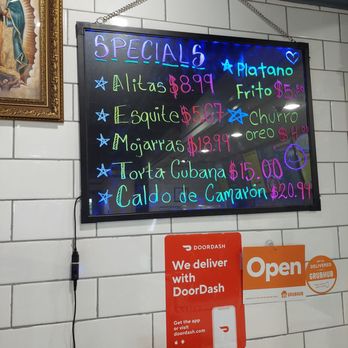 SPECIALS
Alitas $8.99
Esquite
Mojarras $18.99
Torta Cubana $15.00
Caldo de Camarón $20.99
Platano
Frito
Churro
oreo
DOORDASH
We deliver
with
DoorDash
Get the app
or visit
doordash.com
Open
GRUBHUB
DELIVERED
GRUBHUB